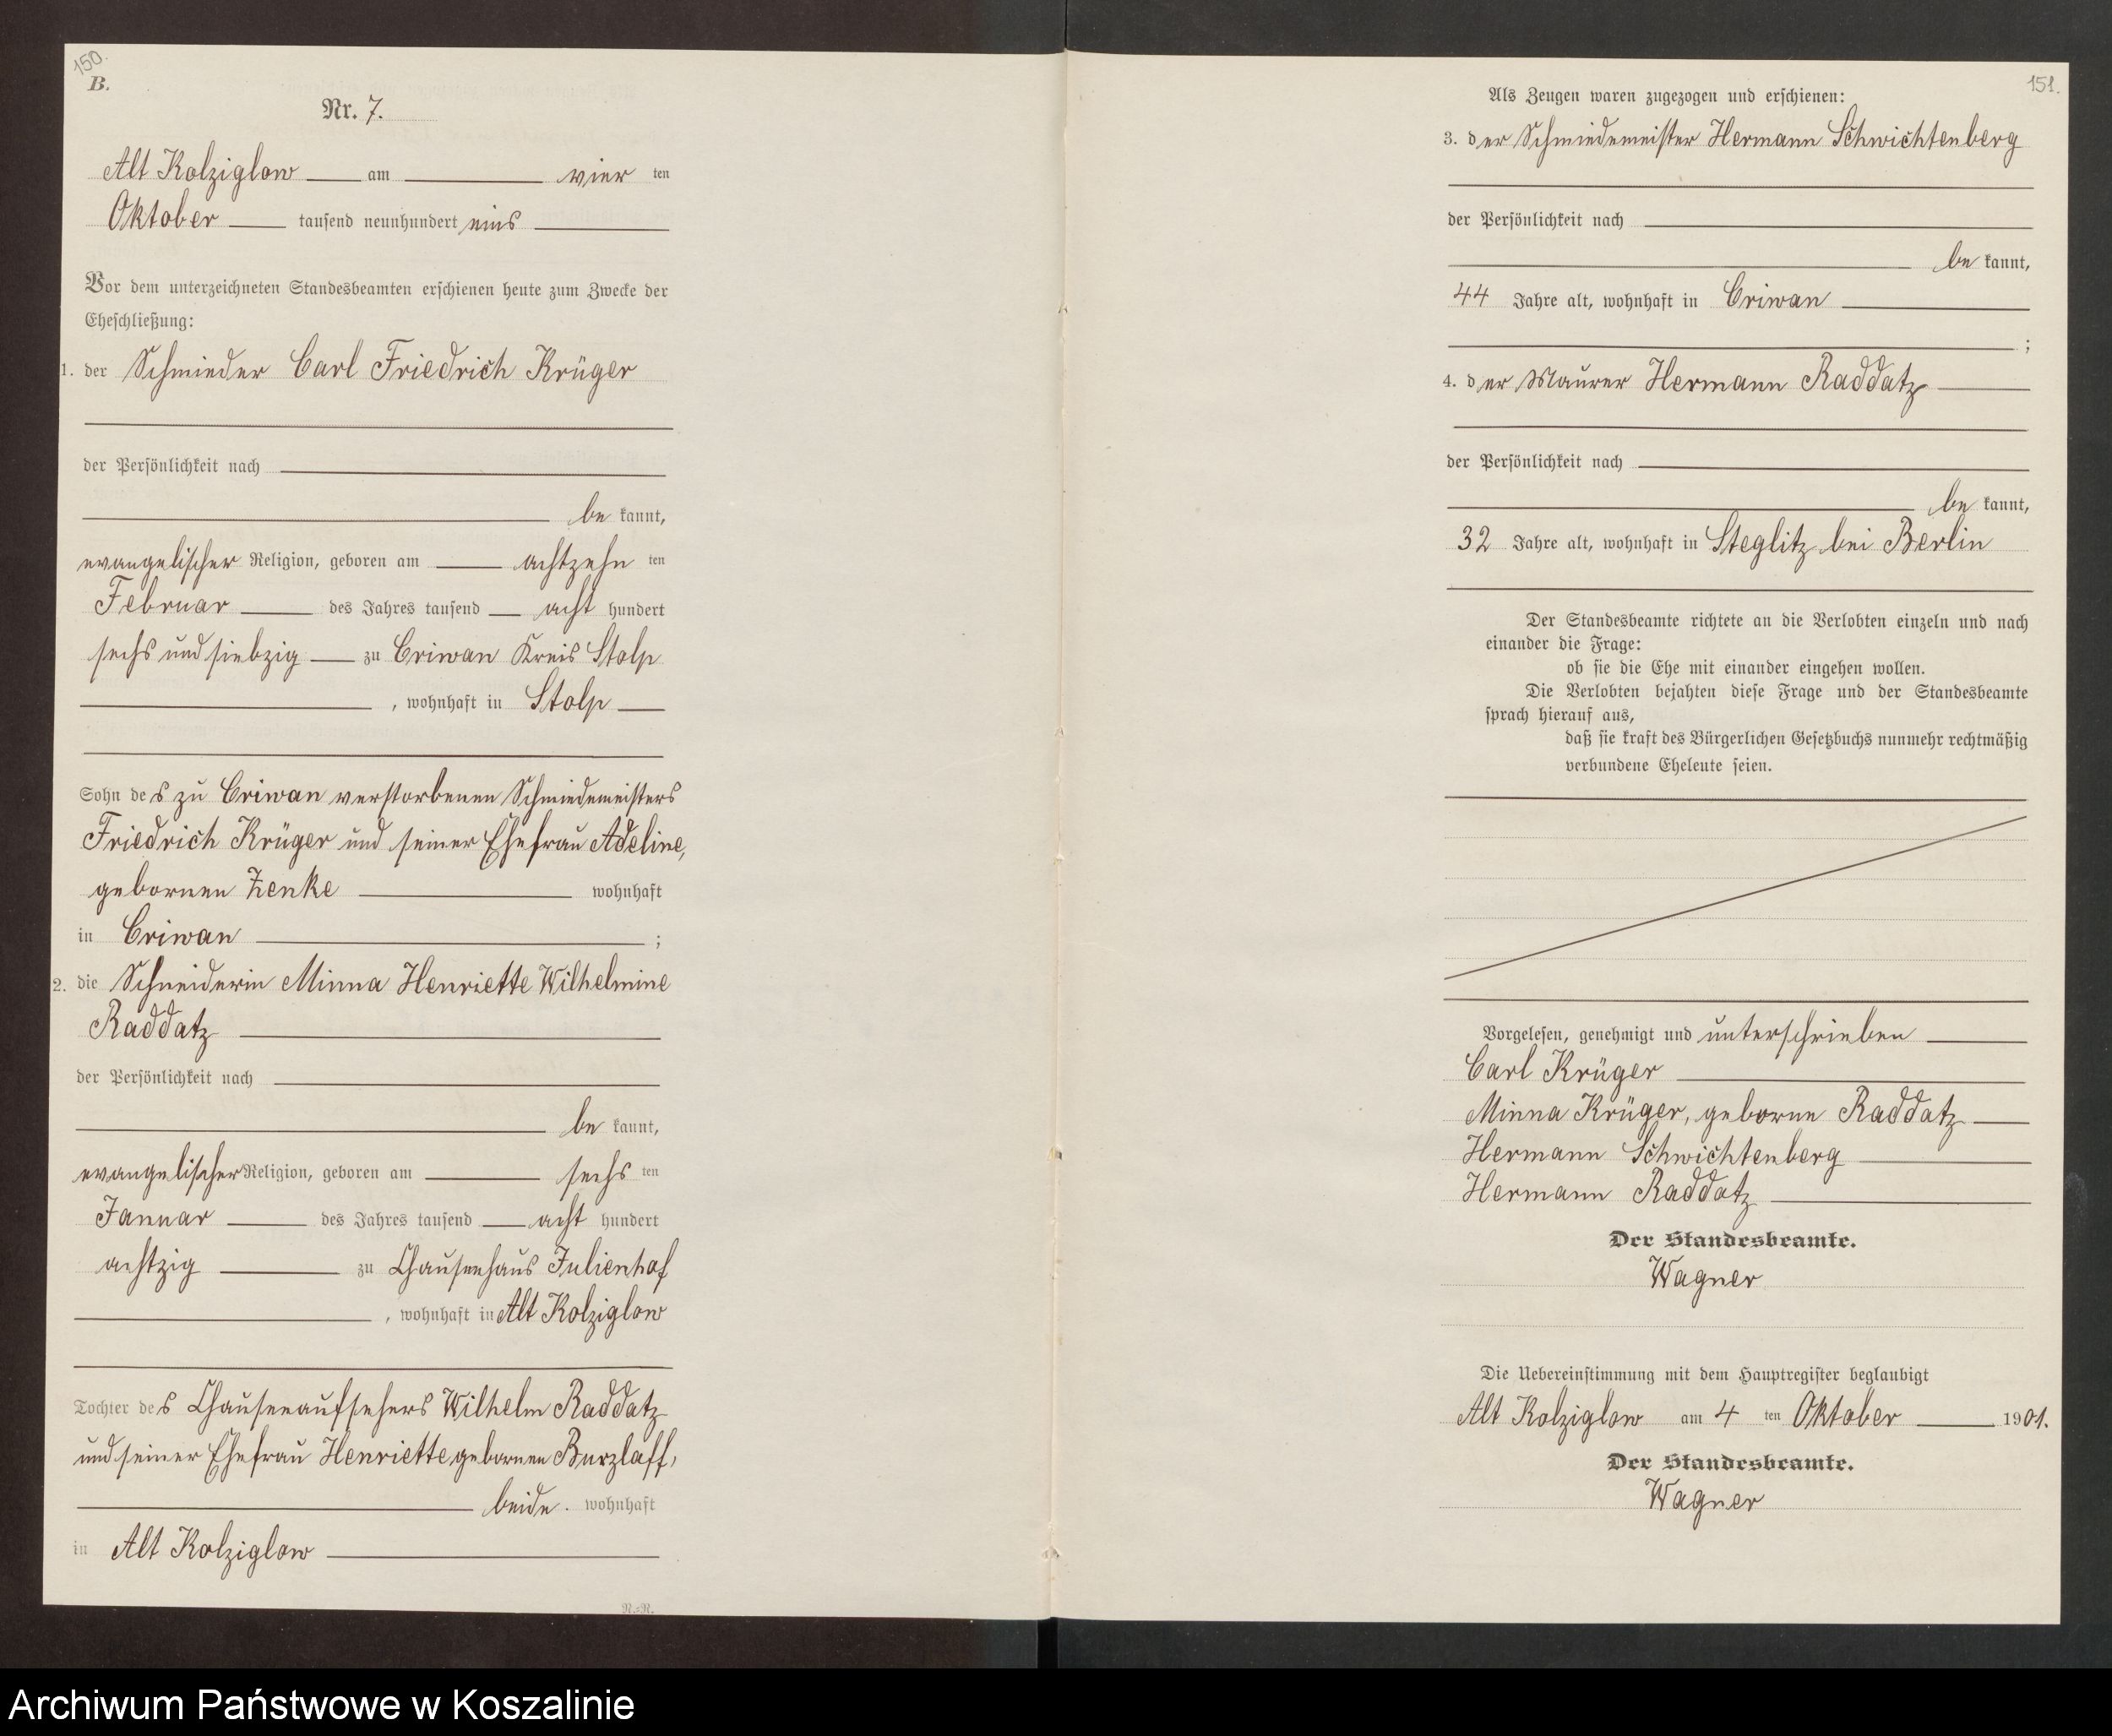 150.
B.
Nr. 7.
Alt Kolziglow am vier ten
Oktober tausend neunhundert eins
Vor dem unterzeichneten Standesbeamten erschienen heute zum Zwecke der
Eheschließung:
1. der Schmieder Carl Friedrich Krüger
der Persönlichkeit nach
be kannt,
evangelischer Religion, geboren am achtzehn ten
Februar des Jahres tausend acht hundert
sechs und siebzig zu Criwan Kreis Stolp
, wohnhaft in Stolp
Sohn des zu Criwan verstorbenen Schmiedemeisters
Friedrich Krüger und seiner Ehefrau Adeline,
gebornen Zenke wohnhaft
in Criwan ;
2. die Schneiderin Minna Henriette Wilhelmine
Raddatz
der Persönlichkeit nach
be kannt,
evangelischer Religion, geboren am sechs ten
Januar des Jahres tausend acht hundert
achtzig zu Chauseehaus Julienhof
, wohnhaft in Alt Kolziglow
Tochter des Chauseeaufsehers Wilhelm Raddatz
und seiner Ehefrau Henriette gebornen Burzlaff,
beide. wohnhaft
in Alt Kolziglow
N.=N.
151.
Als Zeugen waren zugezogen und erschienen:
3. der Schmiedemeister Hermann Schwichtenberg
der Persönlichkeit nach
be kannt,
44 Jahre alt, wohnhaft in Criwan
;
4. der Maurer Hermann Raddatz
der Persönlichkeit nach
be kannt,
32 Jahre alt, wohnhaft in Steglitz bei Berlin
Der Standesbeamte richtete an die Verlobten einzeln und nach
einander die Frage:
ob sie die Ehe mit einander eingehen wollen.
Die Verlobten bejahten diese Frage und der Standesbeamte
sprach hierauf aus,
daß sie kraft des Bürgerlichen Gesetzbuchs nunmehr rechtmäßig
verbundene Eheleute seien.
Vorgelesen, genehmigt und unterschrieben
Carl Krüger
Minna Krüger, geborne Raddatz
Hermann Schwichtenberg
Hermann Raddatz
Der Standesbeamte.
Wagner
Die Uebereinstimmung mit dem Hauptregister beglaubigt
Alt Kolziglow am 4 ten Oktober 1901.
Der Standesbeamte.
Wagner
Archiwum Państwowe w Koszalinie